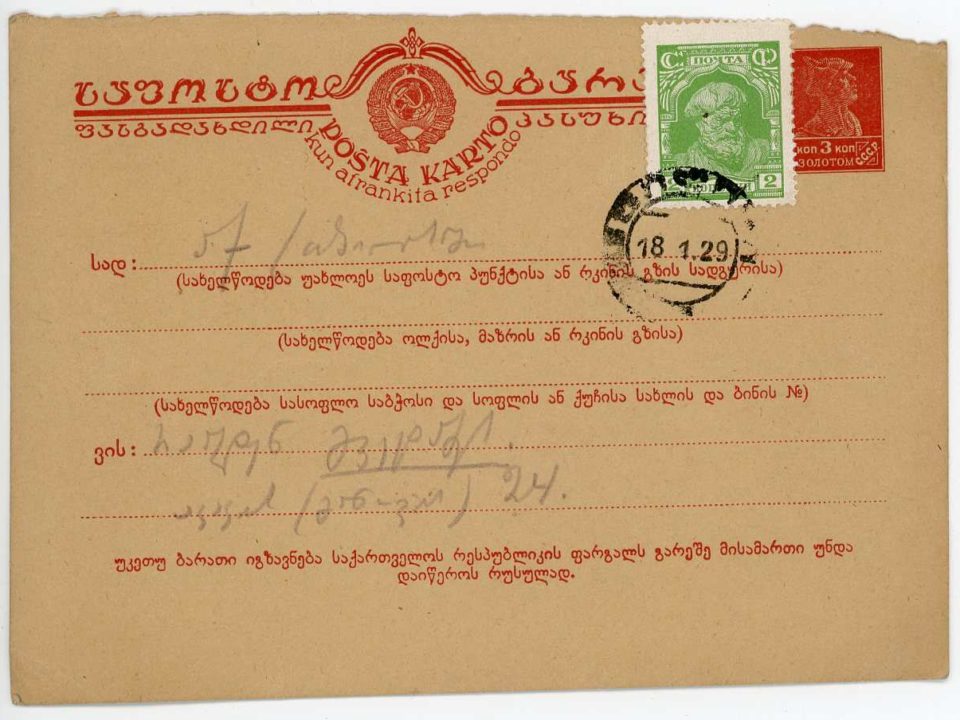 საფოსტო ბარა
ფასგადახდილი პასუხი
POŜTA KARTO
kun afrankita respondo
ПОЧТА
2
КОП 3 КОП
ЗОЛОТОМ
С.С.С.Р.
18 1.29
სად:
(სახელწოდება უახლოეს საფოსტო პუნქტისა ან რკინის გზის სადგურისა)
(სახელწოდება ოლქისა, მაზრის ან რკინის გზისა)
(სახელწოდება სასოფლო საბჭოსი და სოფლის ან ქუჩისა სახლის და ბინის №)
ვის:
24.
უკეთუ ბარათი იგზავნება საქართველოს რესპუბლიკის ფარგალს გარეშე მისამართი უნდა
დაიწეროს რუსულად.